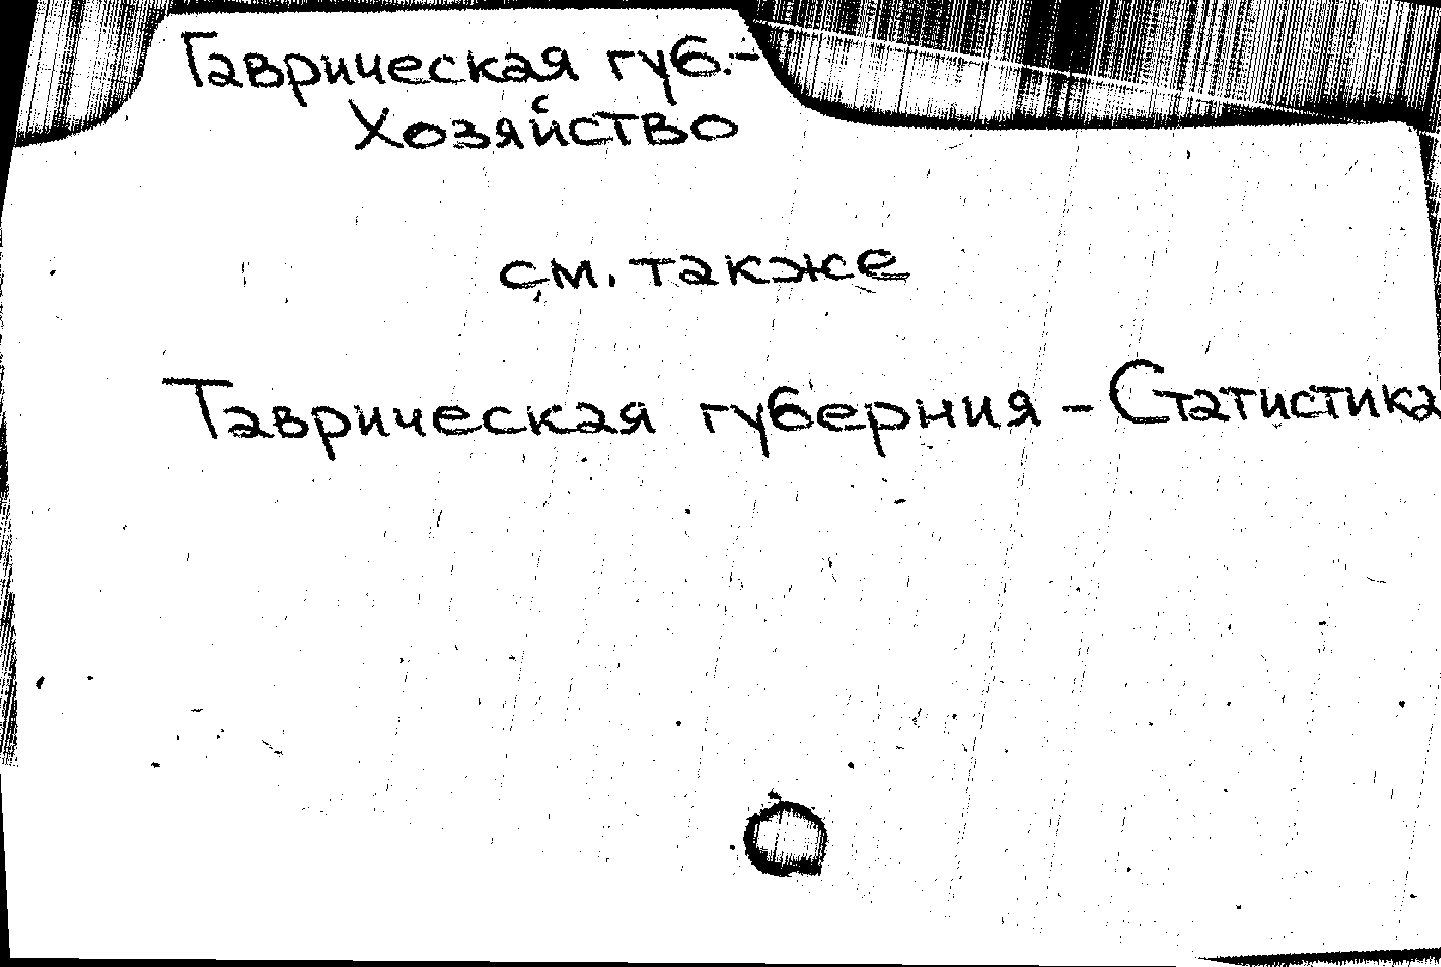 Таврическая губ.-
Хозяйство
см. также
Таврическая губерния - Статистика